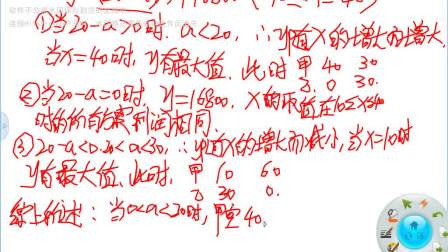 ①当20-a>0时, a<20, ∴y随x的增大而增大,
当x=40时, y有最大值. 此时 甲 40 30
乙 0 30.
②当20-a=0时, y=16800, x的取值在10≤x≤40
时的所有方案利润相同.
③20-a<0. 20<a<30, ∴y随x的增大而减小, 当x=10时
y有最大值, 此时, 甲 10 60
乙 30 0.
综上所述: 当0<a<20时, 甲型 40.